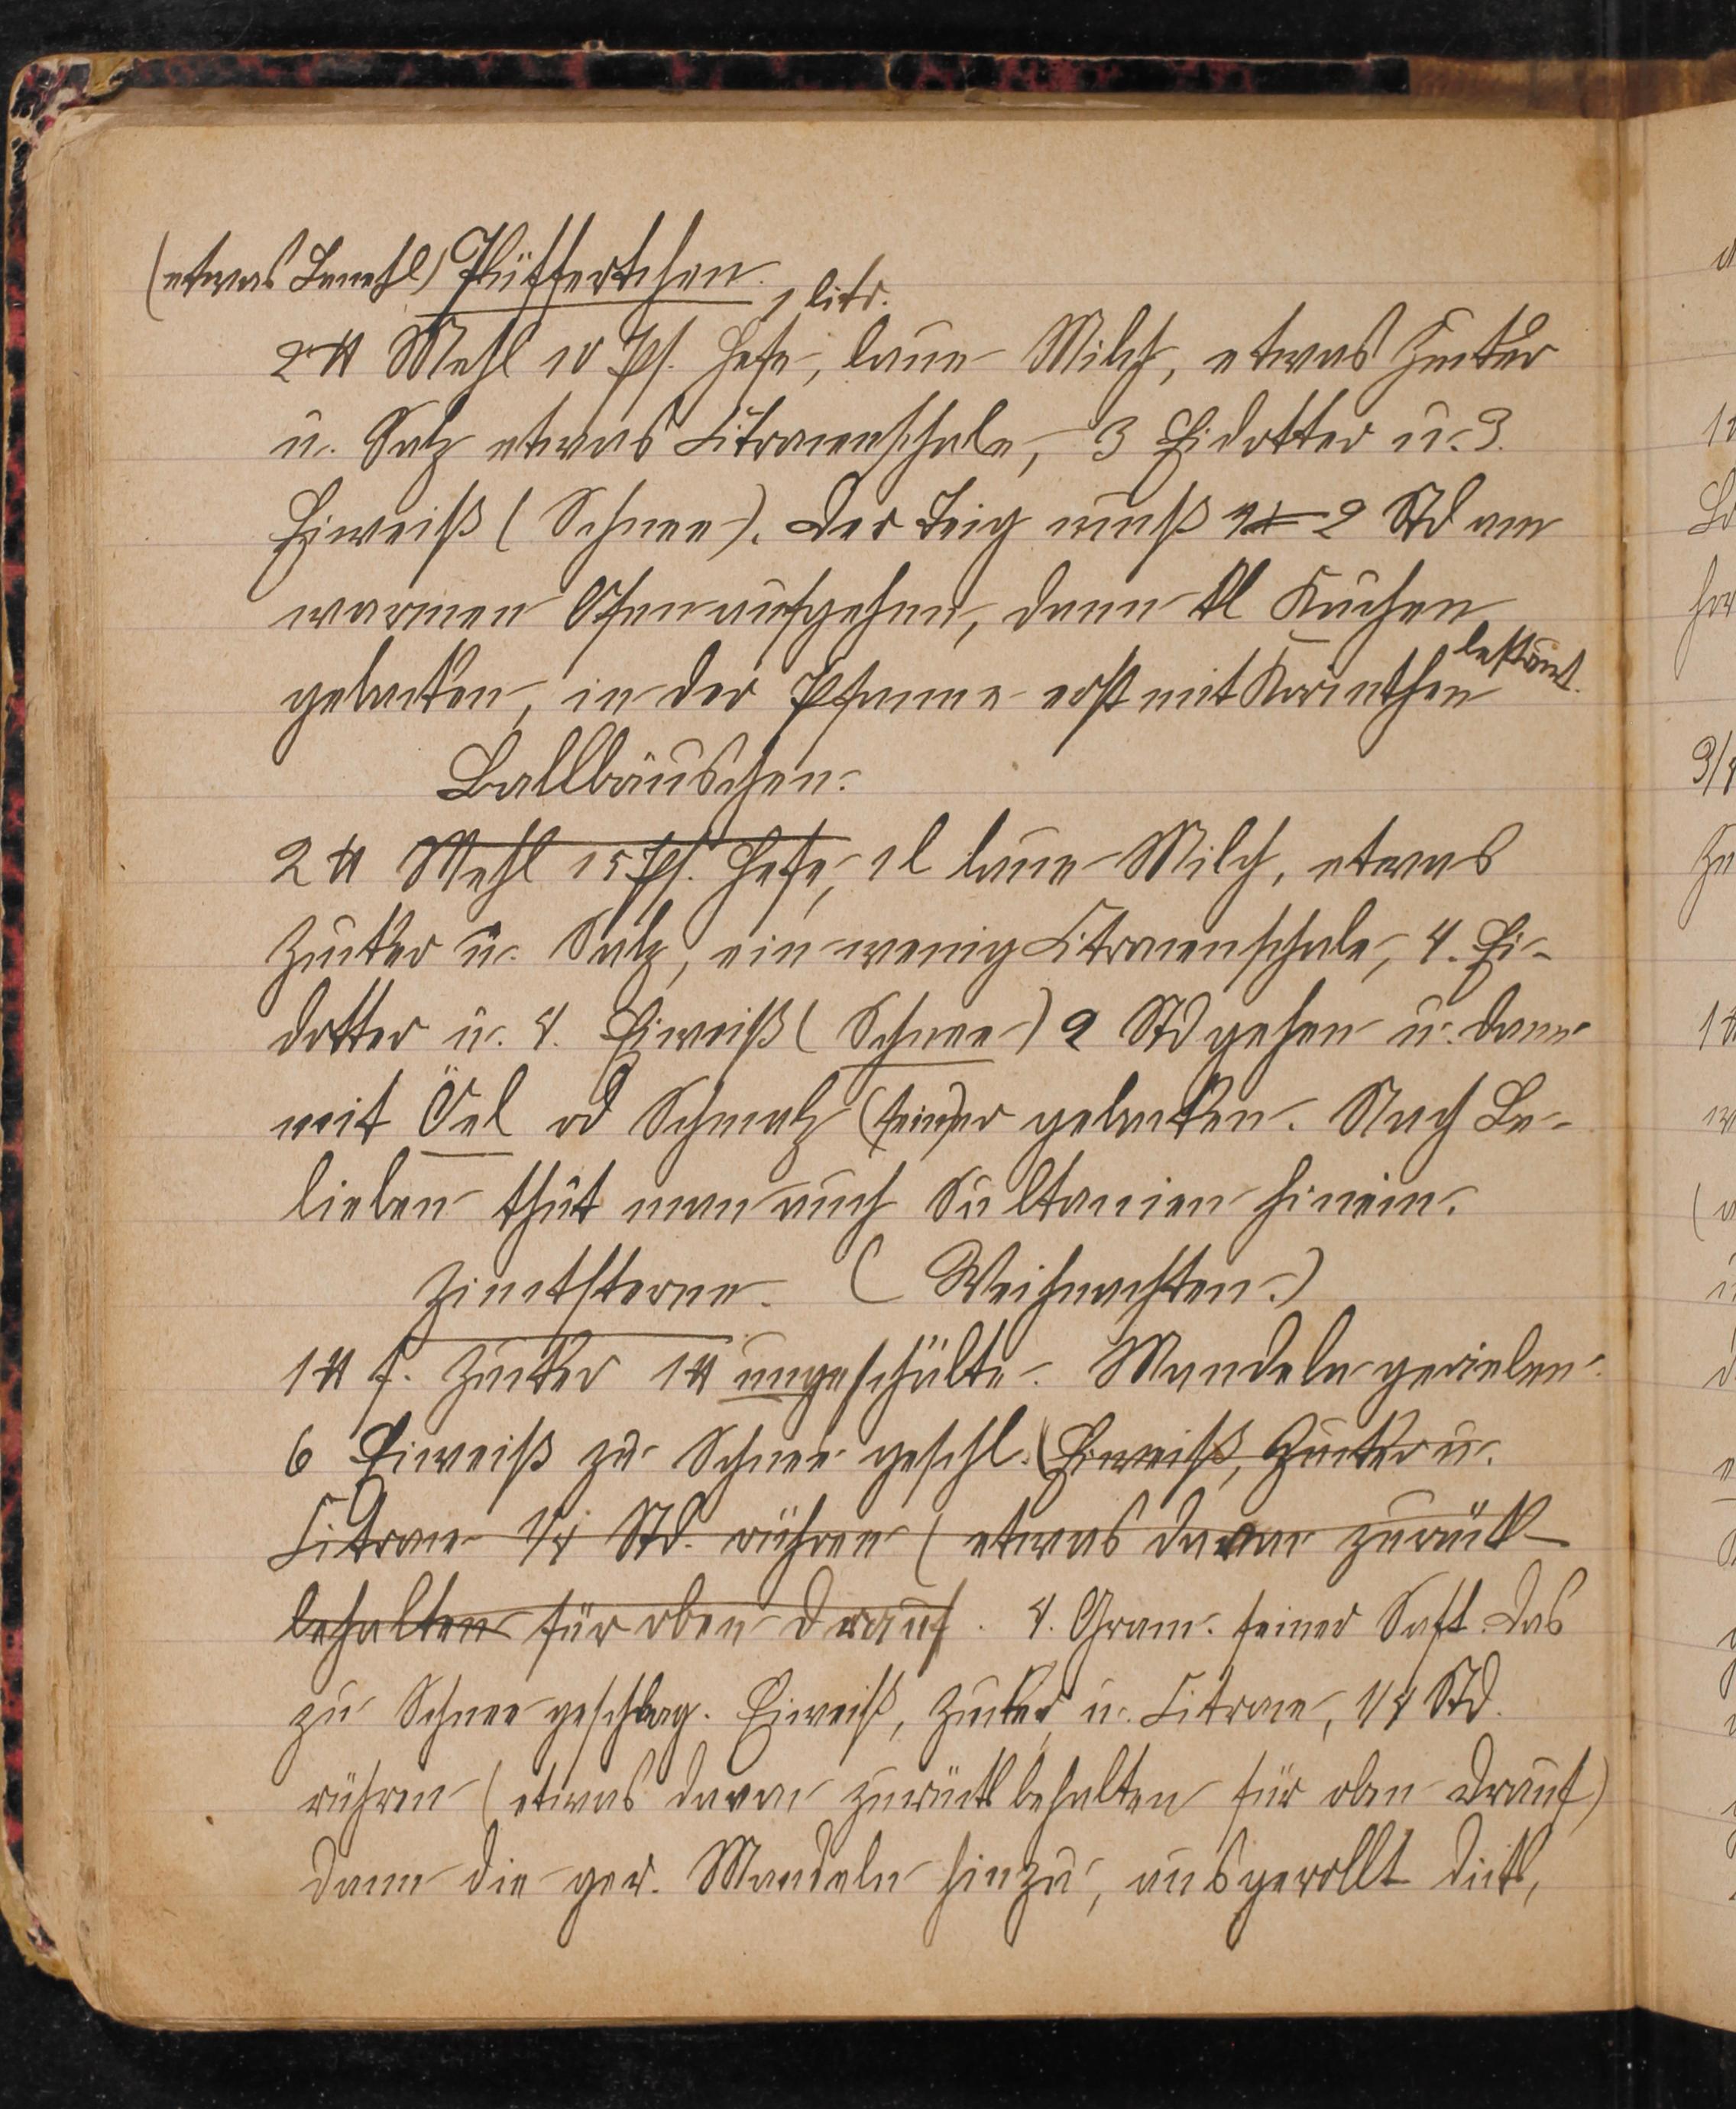 (etwas Bmehl) Püffertchen.
1 litr.
2 ℔ Mehl 10 Pf. Hefe, laue Milch, etwas Zucker
u. Salz etwas Citronenschale, 3 Eidotter u. 3.
Eiweiß (Schnee). Der Teig muß 2 Std am
warmen Ofen aufgehen, dann kl Kuchen
gebacken, in der Pfanne erst mit Korinthen bestreut.
Ballbäuschen.
2 ℔ Mehl 15 Pf. Hefe, 1l laue Milch, etwas
Zucker u. Salz, ein wenig Citronenschale, 4. Ei-
dotter u. 4. Eiweiß (Schnee) 2 Std gehen u. dann
mit Öel od Schmalz (feiner) gebacken. Nach Be-
lieben thut man auch Sultanien hinein.
Zimtsterne. (Weihnachten.)
1 ℔ f. Zucker 1 ℔ ungeschälte. Mandeln gerieben.
6 Eiweiß zu Schnee geschl. (Eiweiß, Zucker u.
Citrone 1/4 Std. rühren (etwas davon zurück
behalten für oben drauf. 4. Gram. feiner Saft. Das
zu Schnee geschlag. Eiweiß, Zucker u. Citrone, 1/4 Std.
rühren (etwas davon zurückbehalten für oben drauf)
dann die ger. Mandeln hinzu, ausgerollt dick,